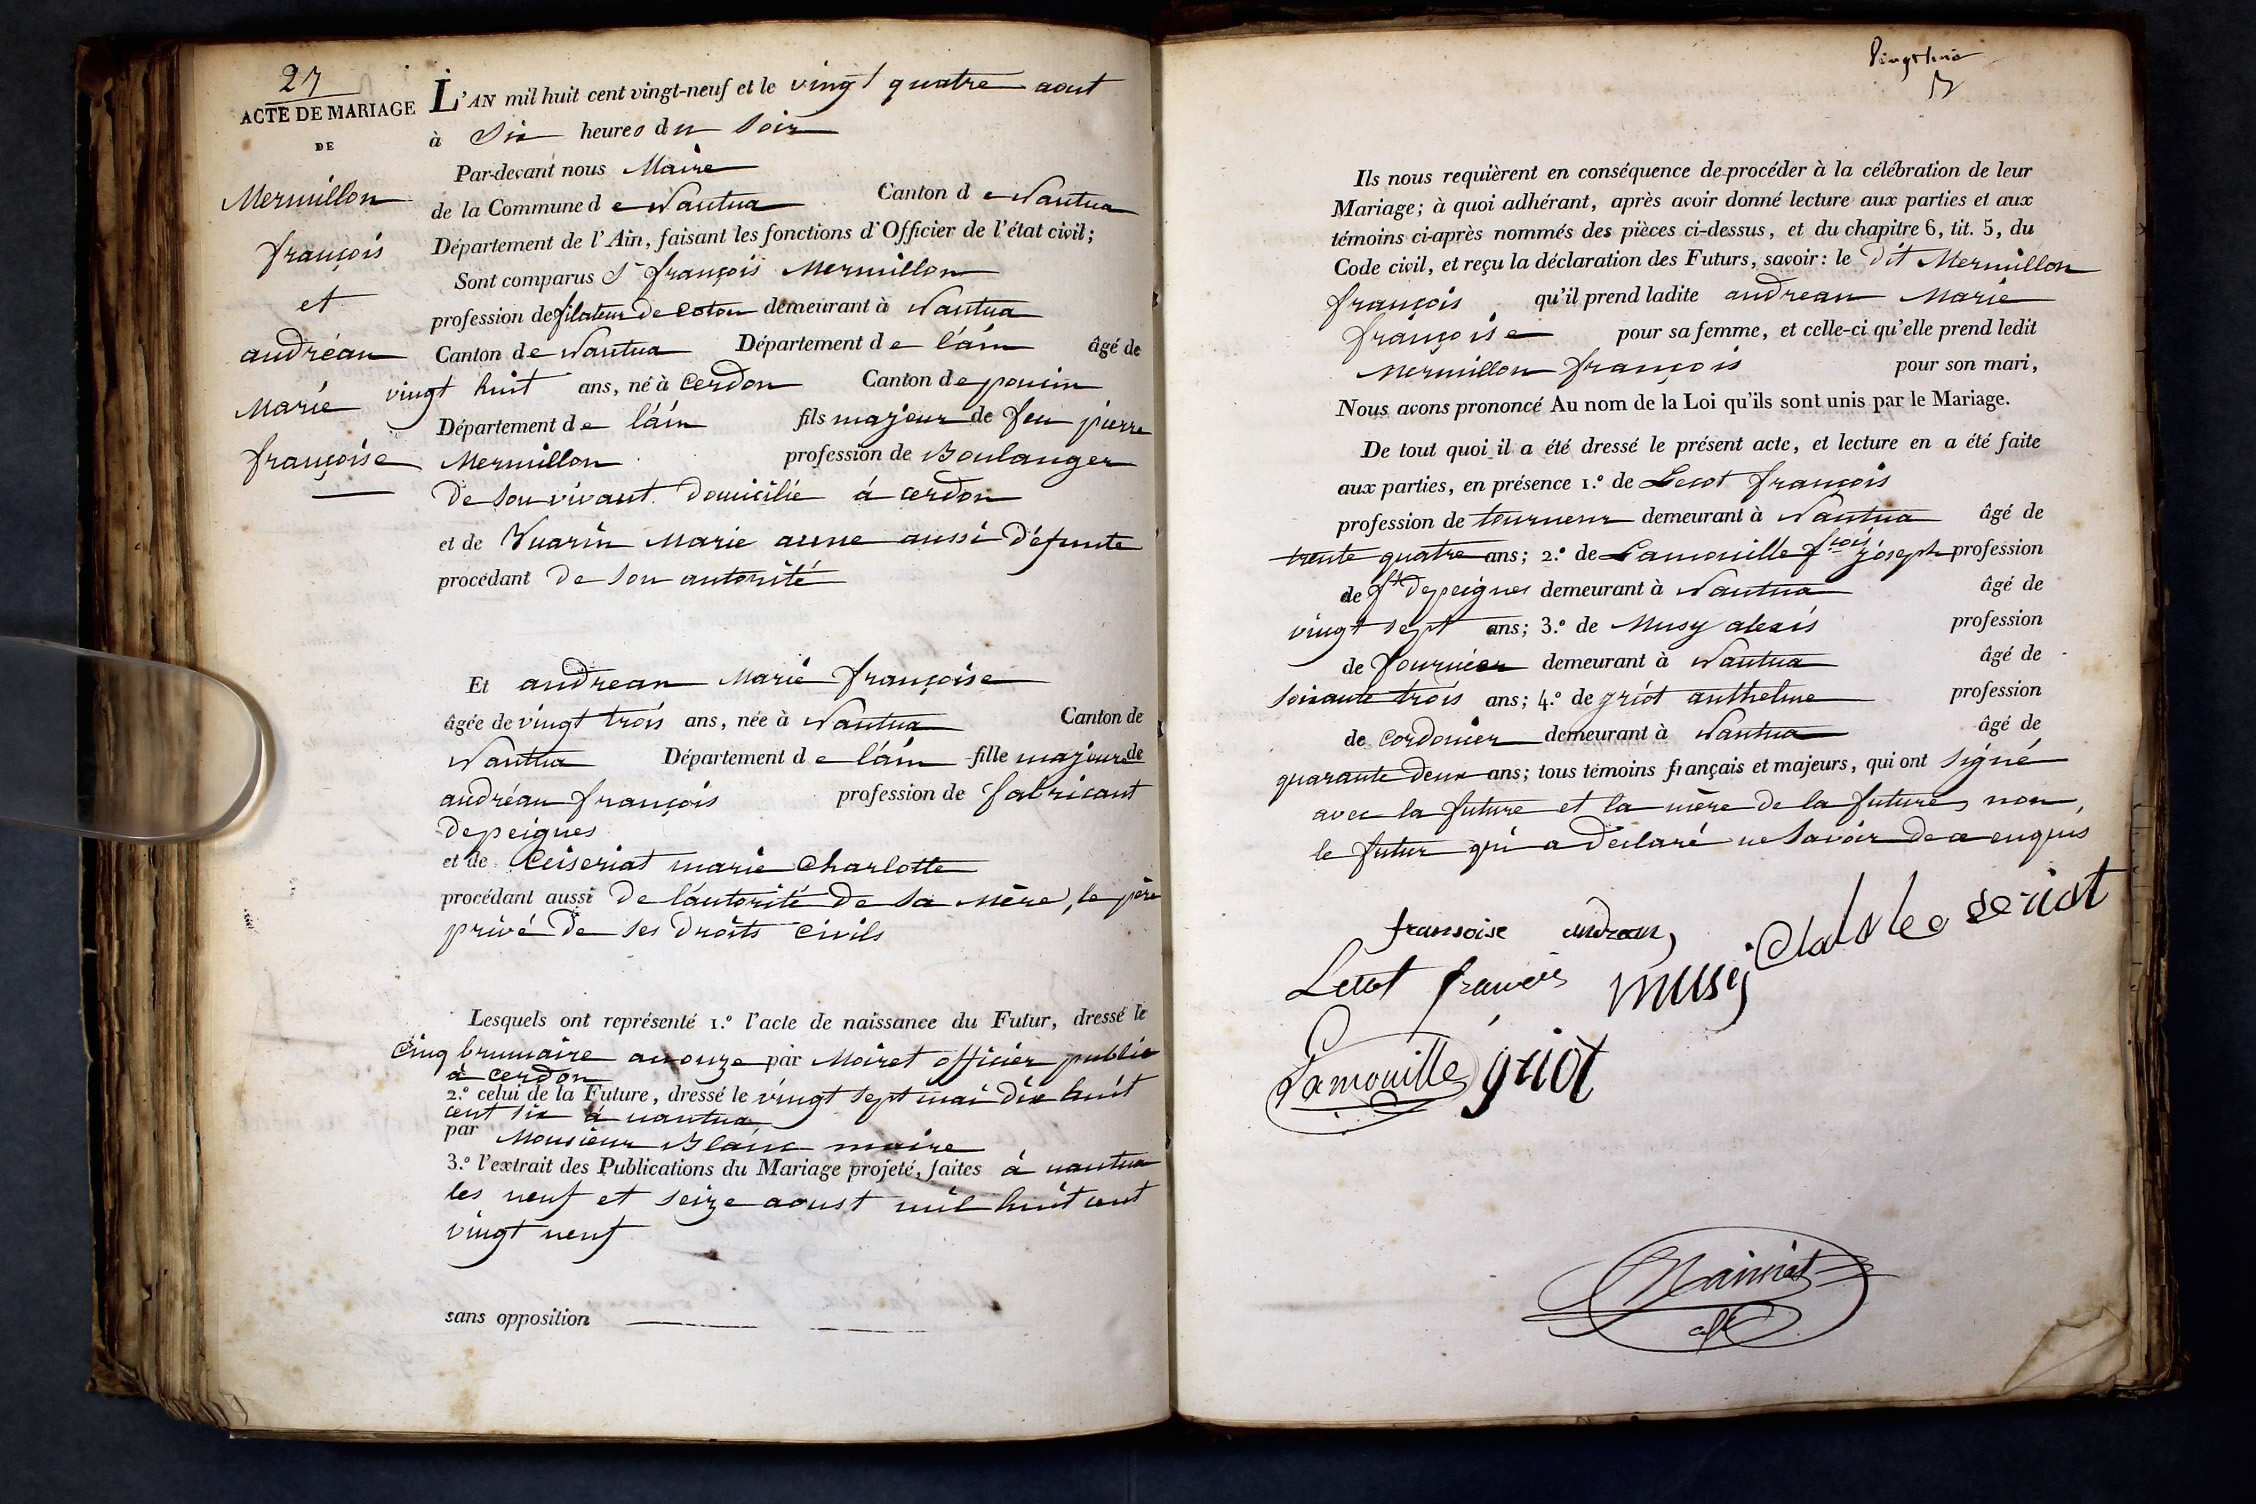 27
ACTE DE MARIAGE
DE
Mermillon
françois
et
andréan
Marie
françoise
L'AN mil huit cent vingt-neuf et le vingt quatre aout
à Six heures du Soir
Par-devant nous Maire
de la Commune de Nantua Canton de Nantua
Département de l'Ain, faisant les fonctions d'Officier de l'état civil;
Sont comparus Sr françois Mermillon
profession de filateur de coton demeurant à Nantua
Canton de Nantua Département de l'áin âgé de
vingt huit ans, né à Cerdon Canton de poncin
Département de l'áin fils majeur de feu pierre
Mermillon profession de Boulanger
De son vivant Domicilié á cerdon
et de Vuarin Marie anne aussi Défunte
procédant De son autorité
Et andrean Marie françoise
âgée de vingt trois ans, née à Nantua Canton de
Nantua Département de l'áin fille majeure de
andréan françois profession de fabricant
depeignes
et de Ceiseriat marie Charlotte
procédant aussi De l'autorité De Sa Mère, le père
privé De Ses Droits Civils
Lesquels ont représenté 1.º l'acte de naissance du Futur, dressé le
Cinq brumaire an onze par Moiret officier public
à Cerdon
2.º celui de la Future, dressé le vingt Sept mai Dix huit
cent Six à nantua
par Monsieur Blanc maire
3.º l'extrait des Publications du Mariage projeté, faites à nantua
les neuf et Seize aoust mil huit cent
vingt neuf
sans opposition
Vingt huit
Ils nous requièrent en conséquence de procéder à la célébration de leur
Mariage; à quoi adhérant, après avoir donné lecture aux parties et aux
témoins ci-après nommés des pièces ci-dessus, et du chapitre 6, tit. 5, du
Code civil, et reçu la déclaration des Futurs, savoir: le Dit Mermillon
françois qu'il prend ladite andrean Marie
françoise pour sa femme, et celle-ci qu'elle prend ledit
Mermillon françois pour son mari,
Nous avons prononcé Au nom de la Loi qu'ils sont unis par le Mariage.
De tout quoi il a été dressé le présent acte, et lecture en a été faite
aux parties, en présence 1.º de Lecot françois
profession de tourneur demeurant à Nantua âgé de
trente quatre ans; 2.º de Lamouille fçois joseph profession
de ft depeignes demeurant à Nantua âgé de
vingt sept ans; 3.º de Musy alexis profession
de fournier demeurant à Nantua âgé de
Soixante trois ans; 4.º de griot anthelme profession
de Cordonier demeurant à Nantua âgé de
quarante Deux ans; tous témoins français et majeurs, qui ont Signé
avec la future et la mère de la future, non
le futur qui a Déclaré ne Savoir De ce enquis
fransoise andrean
Lecot francois musy
Lamouille griot